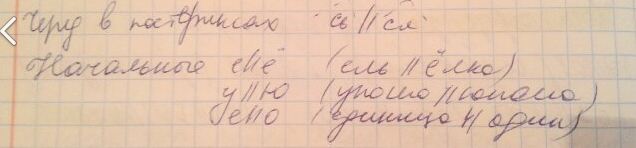 Черед в постфиксах сь // ся
Начальные е//ё (ель // ёлка)
у//ю (уноша // юноша)
е//о (единица // один)